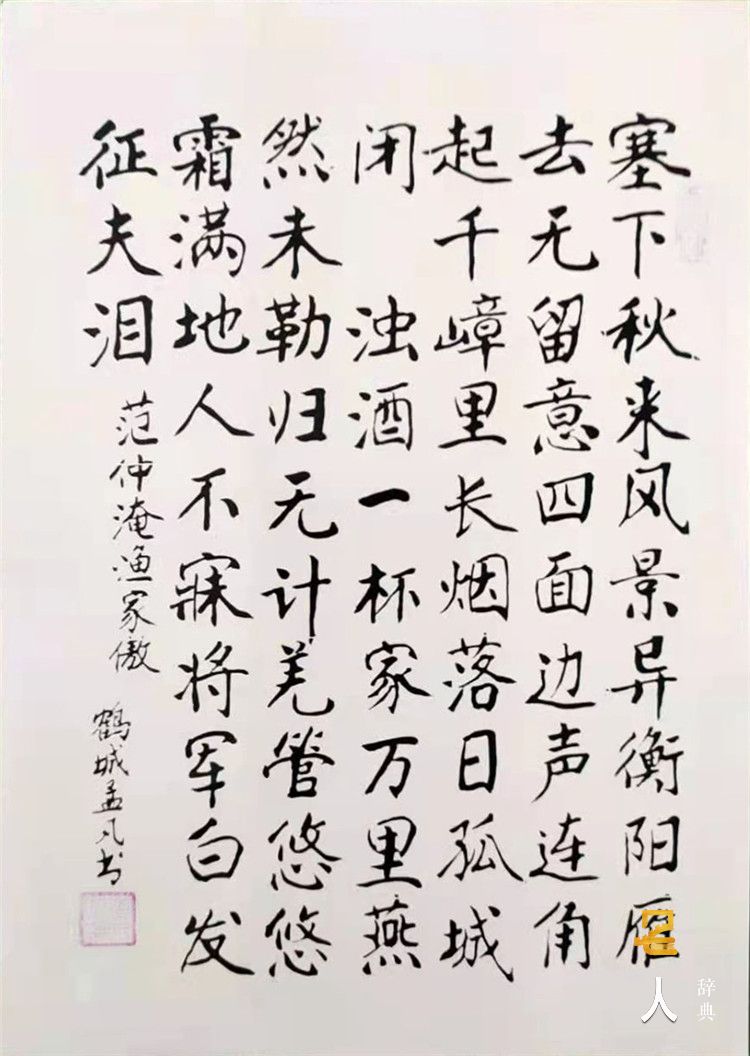 塞下秋来风景异衡阳雁
去无留意四面边声连角
起千嶂里长烟落日孤城
闭 浊酒一杯家万里燕
然未勒归无计羌管悠悠
霜满地人不寐将军白发
征夫泪
范仲淹渔家傲
鹤城孟凡书
名人辞典